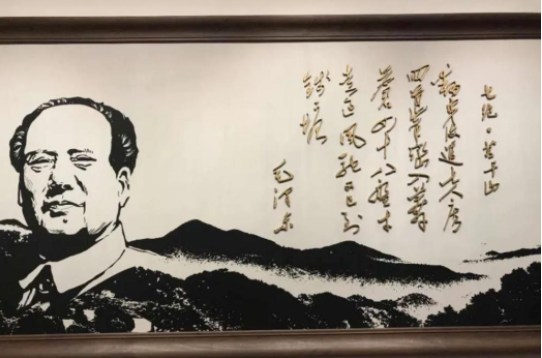 七绝·莫干山
翻身复进七人房
回首峰峦入莽
苍四十八盘才
走过风驰又已到
钱塘
毛泽东